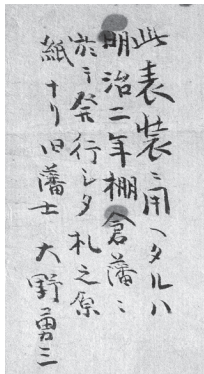 此表装ニ用ヘタルハ
明治二年棚倉藩ニ
於テ発行シタ札之原
紙ナリ旧藩士 大野勇三